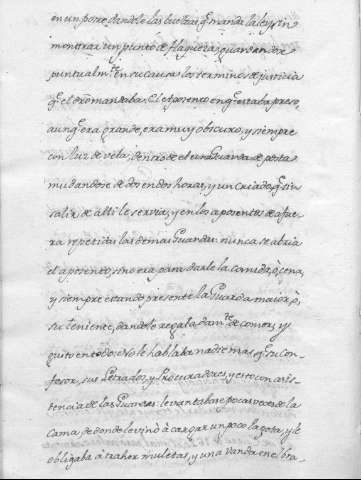 en un potro dandole las bueltas, q̃ manda la ley, sin
mostrar un punto de flaqueza, guardandose
puntualmᵗᵉ en su causa los terminos de justicia
q̃ el drõ mandaba. El aposento en q̃ estaba preso,
aunq̃ era grande, era muy obscuro, y siempre
con luz de vela, dentro de el una Guarda de vista
mudandose de dos en dos horas, y un Criado, q̃ sin
salir de alli le servia, y en los aposentos de afue
ra repetidas las demas Guardas: nunca se abria
el aposento, sino era para darle la comida, ò, çena,
y siempre estando presente la Guarda maior, ò,
su teniente, dandole regaladamᵗᵉ de comer, y
quito en todo. No le hablaba nadie mas q̃ su Con-
fesor, sus Letrados, y Procuradores, y esto con asis-
tencia de las Guardas: levantabase pocas veces de la
cama, de donde le vinò à cargar un poco la gota, y le
obligaba à traher muletas, y una vanda en el bra-